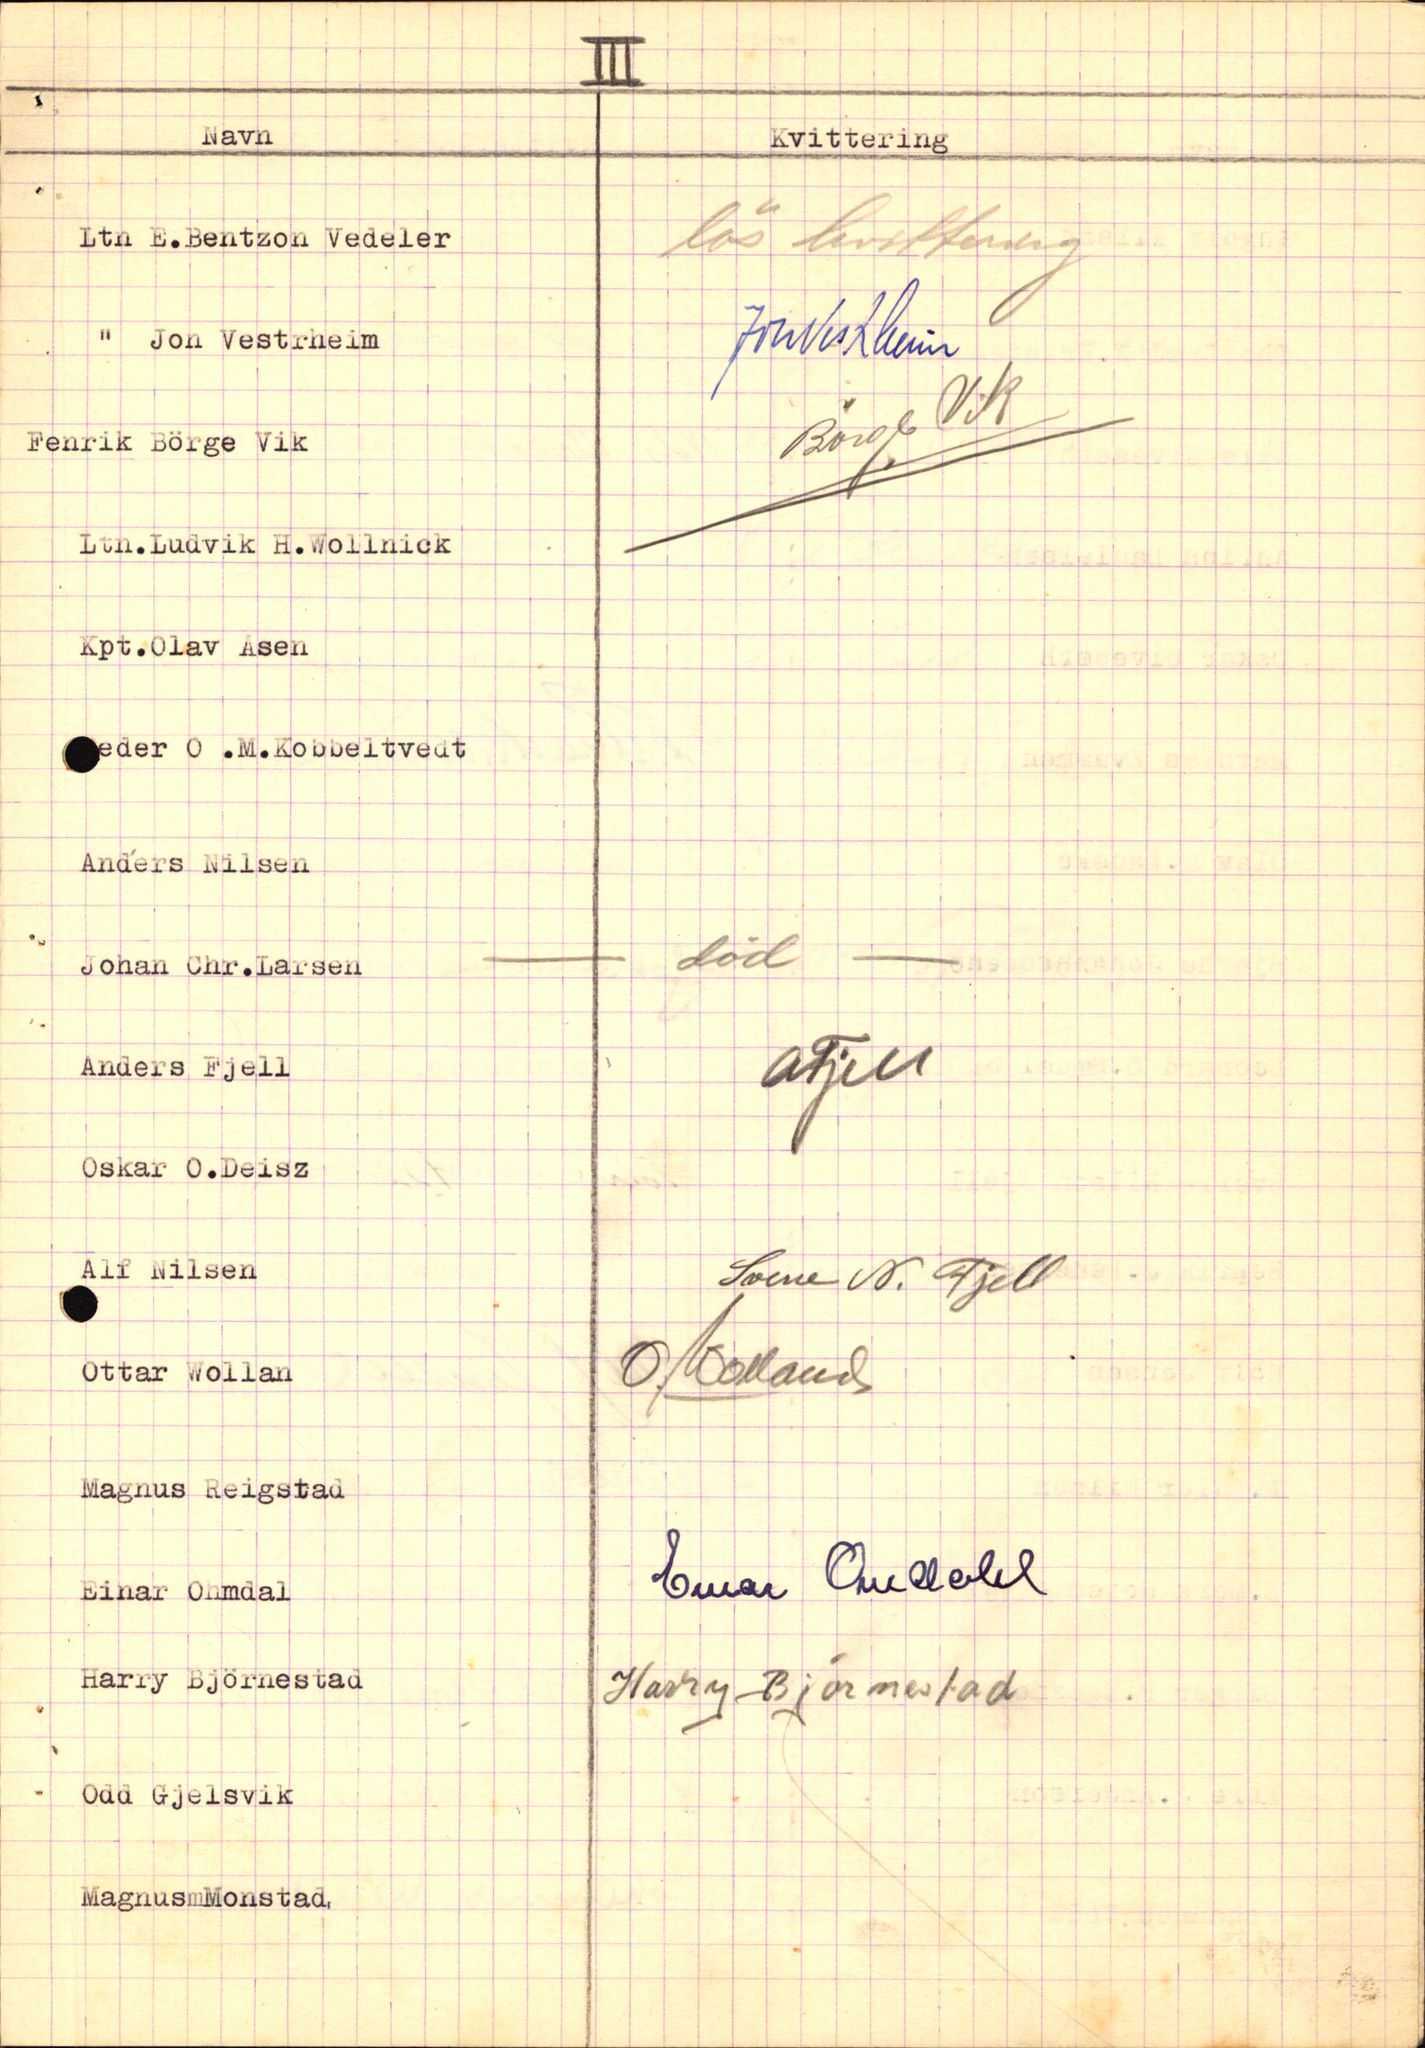 III
Navn Kvittering
Ltn E.Bentzon Vedeler lös kvittering
" Jon Vestrheim Jon Vestrheim
Fenrik Börge Vik Börge Vik
Ltn.Ludvik H.Wollnick
Kpt.Olav Åsen
eder O .M.Kobbeltvedt
Anders Nilsen
Johan Chr.Larsen — död —
Anders Fjell AFjell
Oskar O.Deisz
Alf Nilsen N. Fjell
Ottar Wollan O.
Magnus Reigstad
Einar Ohmdal Einar Omdahl
Harry Björnestad Harry Björnestad
Odd Gjelsvik
MagnusmMonstad,